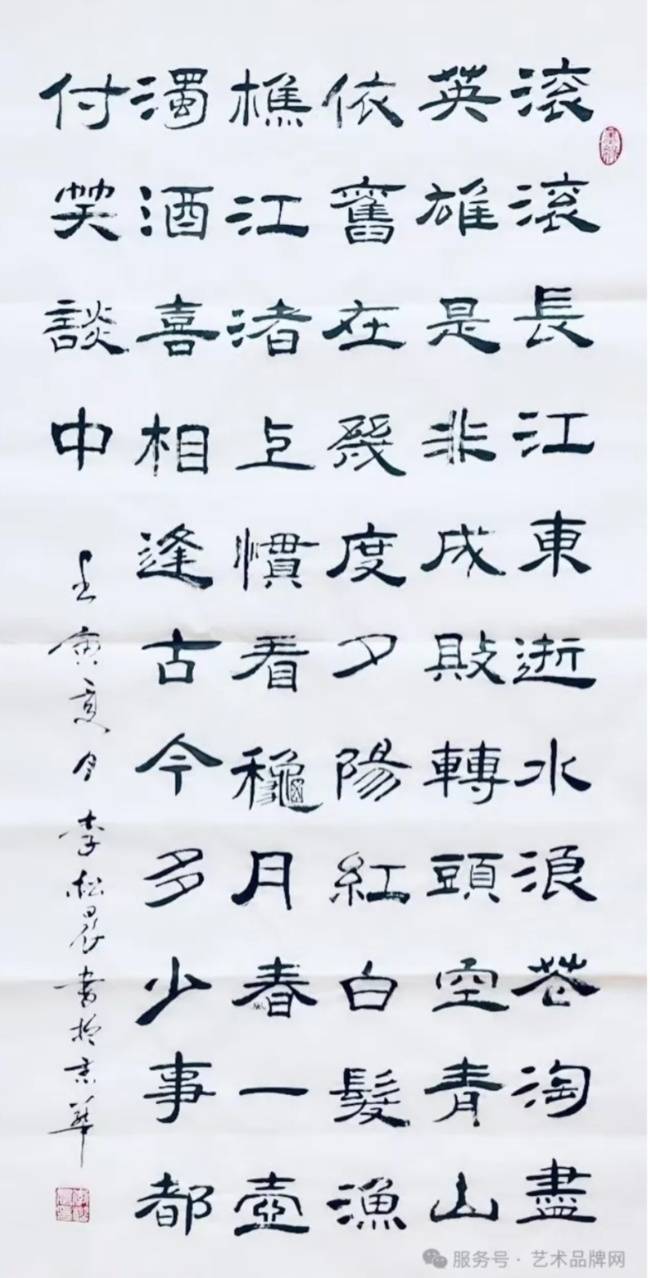 滚滚長江東逝水浪花淘盡
英雄是非成敗轉頭空青山
依舊在幾度夕陽紅白髮漁
樵江渚上慣看穐月春一壺
濁酒喜相逢古今多少事都
付笑談中
壬寅夏月李松晨書於京華
服务号 · 艺术品牌网